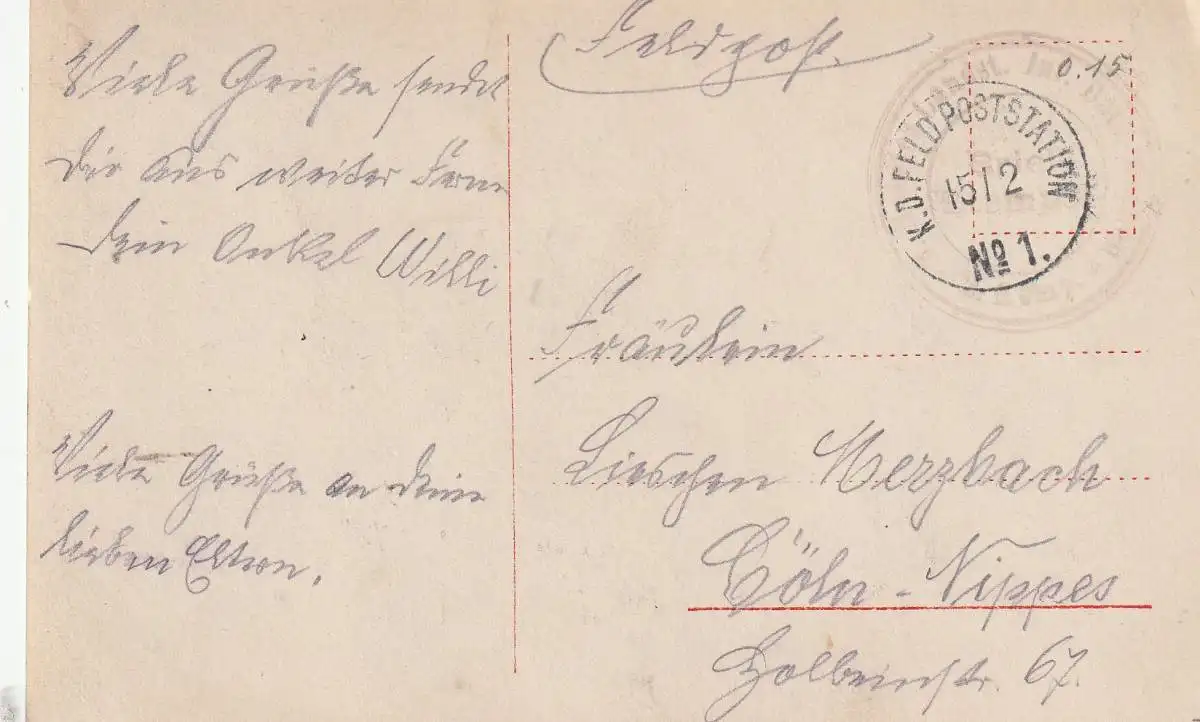 Viele Grüße sendet
Dir aus weiter Ferne
Dein Onkel Willi
Viele Grüße an Deine
lieben Eltern.
Feldpost.
0.15
K.D.FELDPOSTSTATION
15/2
№ 1.
Fräulein
Lieschen Merzbach
Cöln - Nippes
Holbeinstr. 67.